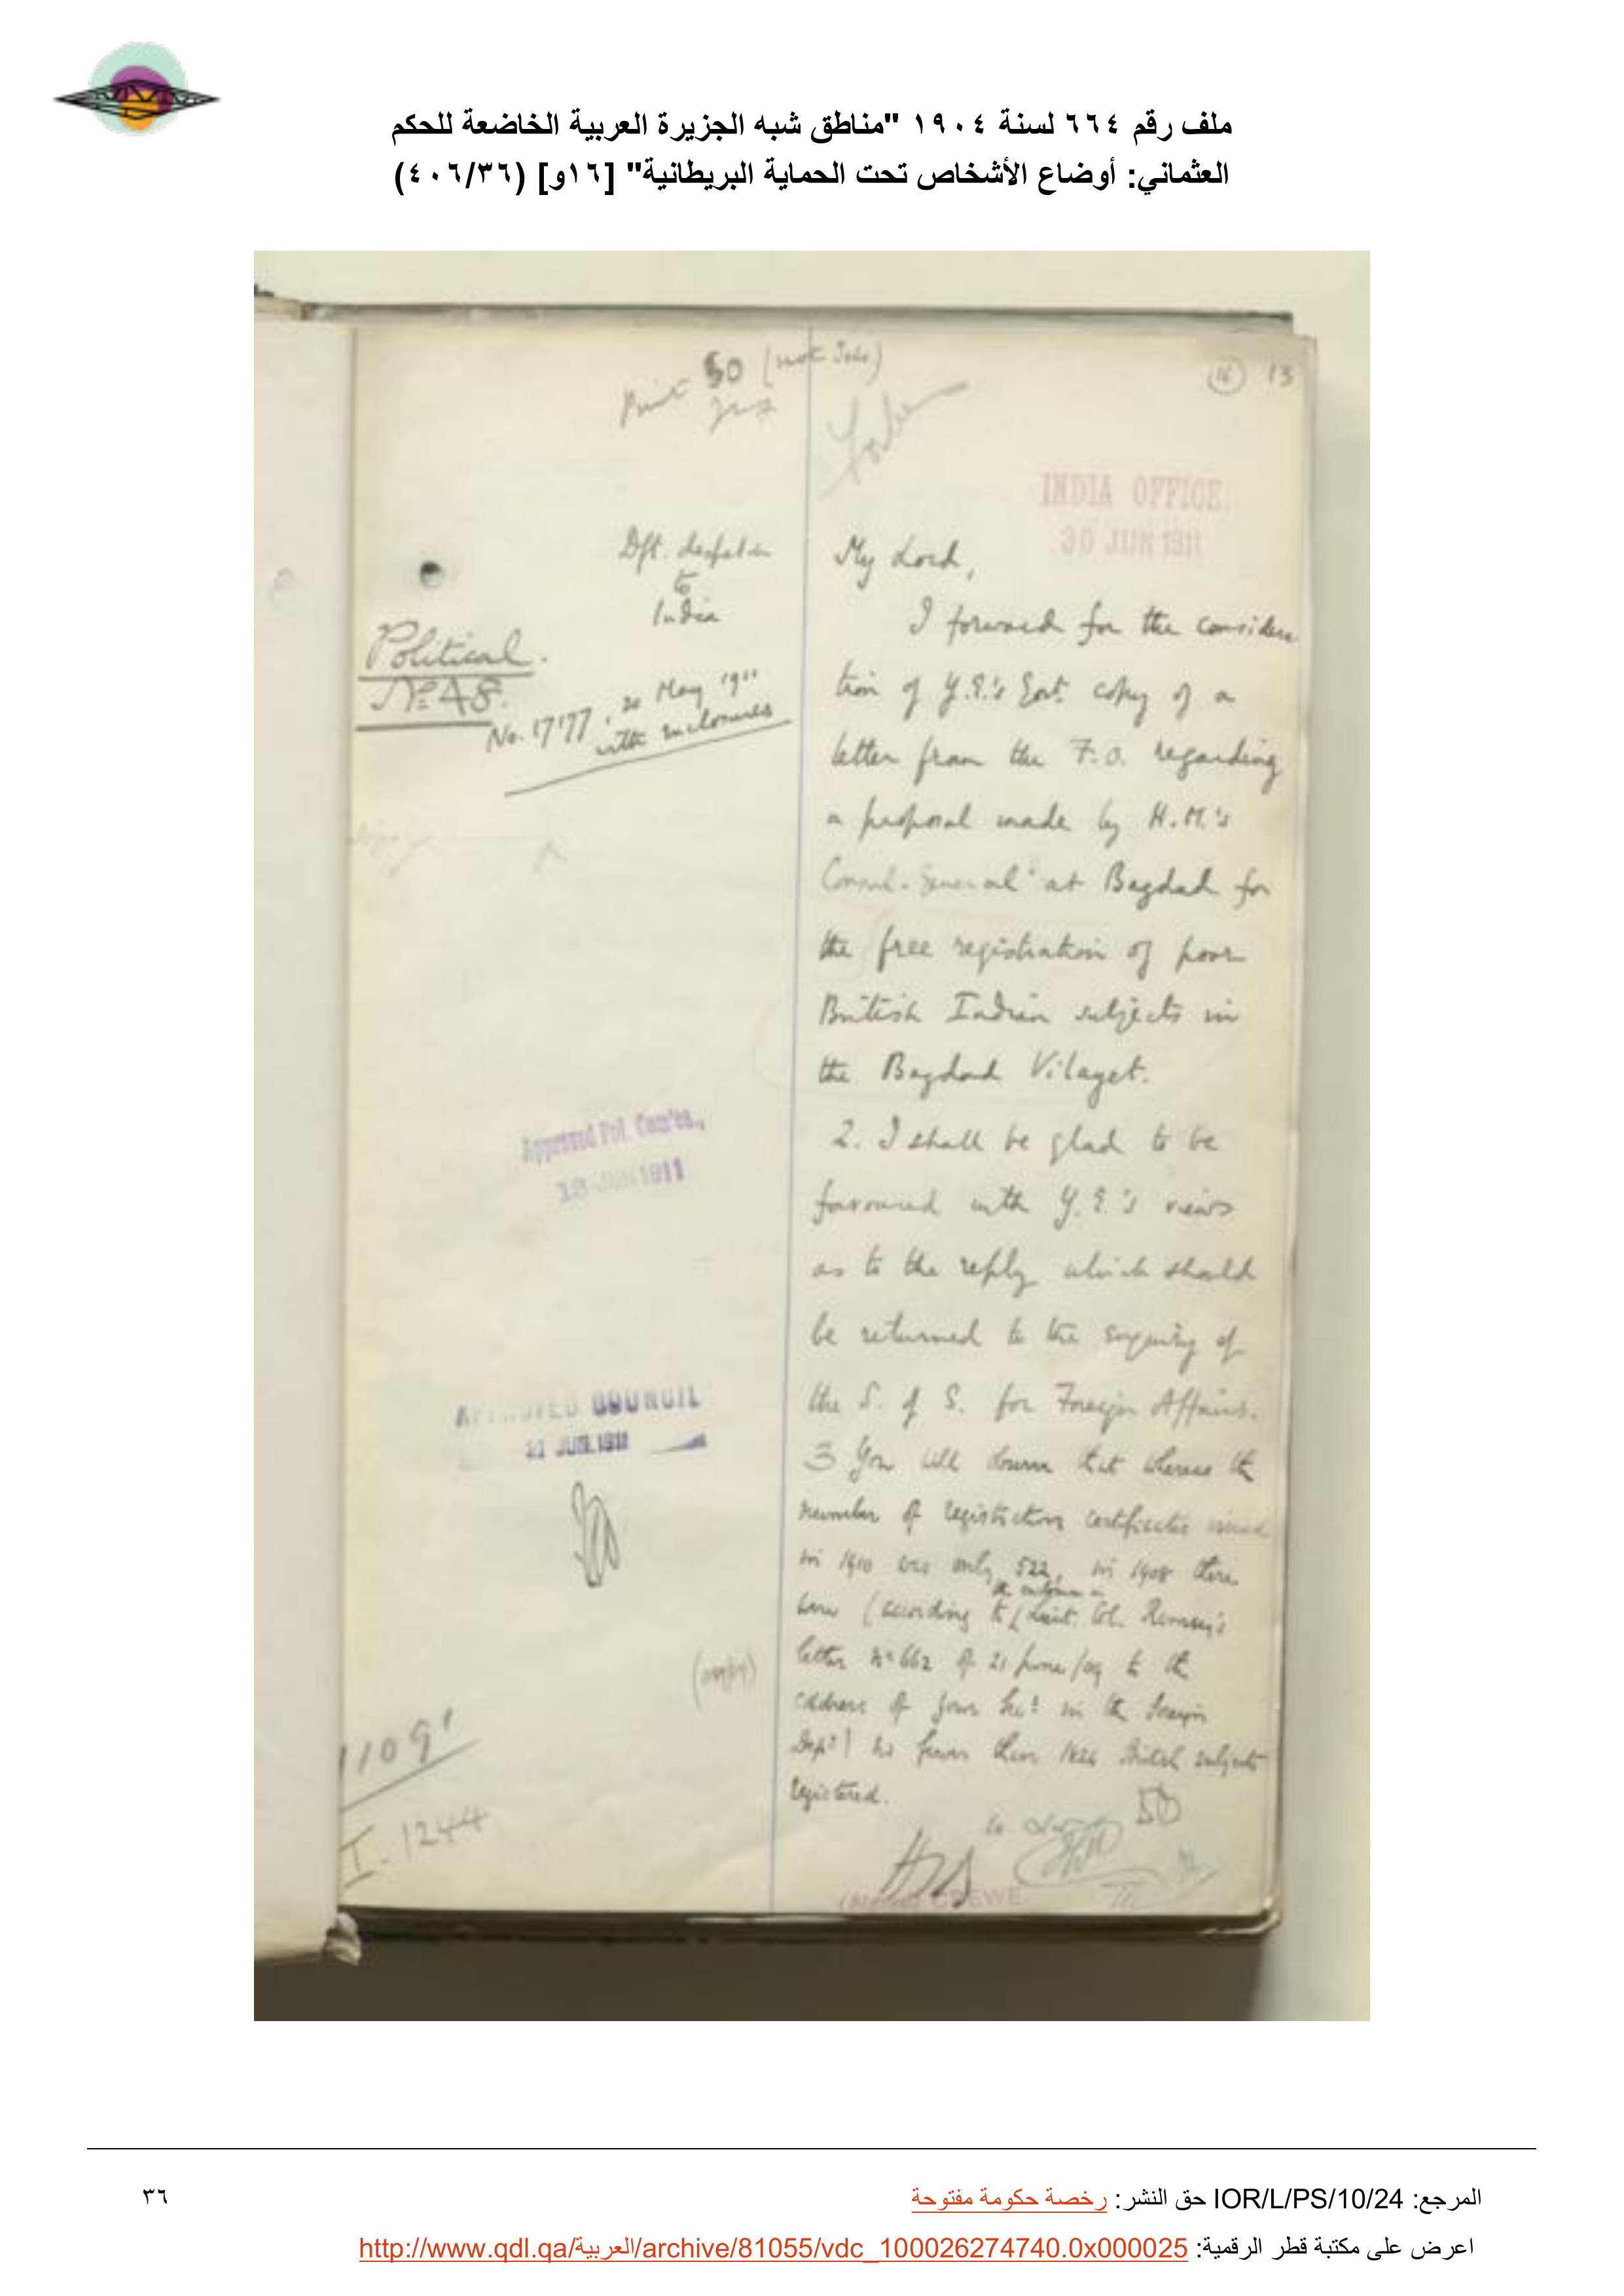 ملف رقم ٦٦٤ لسنة ١٩٠٤ "مناطق شبه الجزيرة العربية الخاضعة للحكم
العثماني: أوضاع الأشخاص تحت الحماية البريطانية" [١٦و] (٤٠٦/٣٦)
Print 50 (not
16 13
INDIA OFFICE.
30 JUN 1911
Dft. despatch
to
India
Political.
No. 48.
No. 17177, 20 May 1911
with enclosures
My Lord,
I forward for the considera
tion of Y.E.'s Govt. copy of a
letter from the F.O. regarding
a proposal made by H.M.'s
Consul-General at Bagdad for
the free registration of poor
British Indian subjects in
the Bagdad Vilayet.
2. I shall be glad to be
favoured with Y.E.'s views
as to the reply which should
be returned to the enquiry of
the S. of S. for Foreign Affairs.
3 You will observe that whereas the
number of registration certificates issued
in 1910 was only 522, in 1908 there
were (according to the enclosure in Lieut. Col. Ramsay's
letter No 662 of 21 June/09 to the
address of your Sec: in the Foreign
Dept) no fewer than 1824 British subjects
registered.
Approved Pol. Com'tee.,
13 JUN 1911
APPROVED COUNCIL
21 JUN. 1911
1109
I. 1244
50
CREWE
المرجع: IOR/L/PS/10/24 حق النشر: رخصة حكومة مفتوحة
٣٦
اعرض على مكتبة قطر الرقمية: http://www.qdl.qa/العربية/archive/81055/vdc_100026274740.0x000025